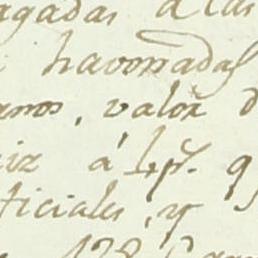 agadas á las
havonadas
nos, valor d
iz á 4 p.s q
ficiales, y
128